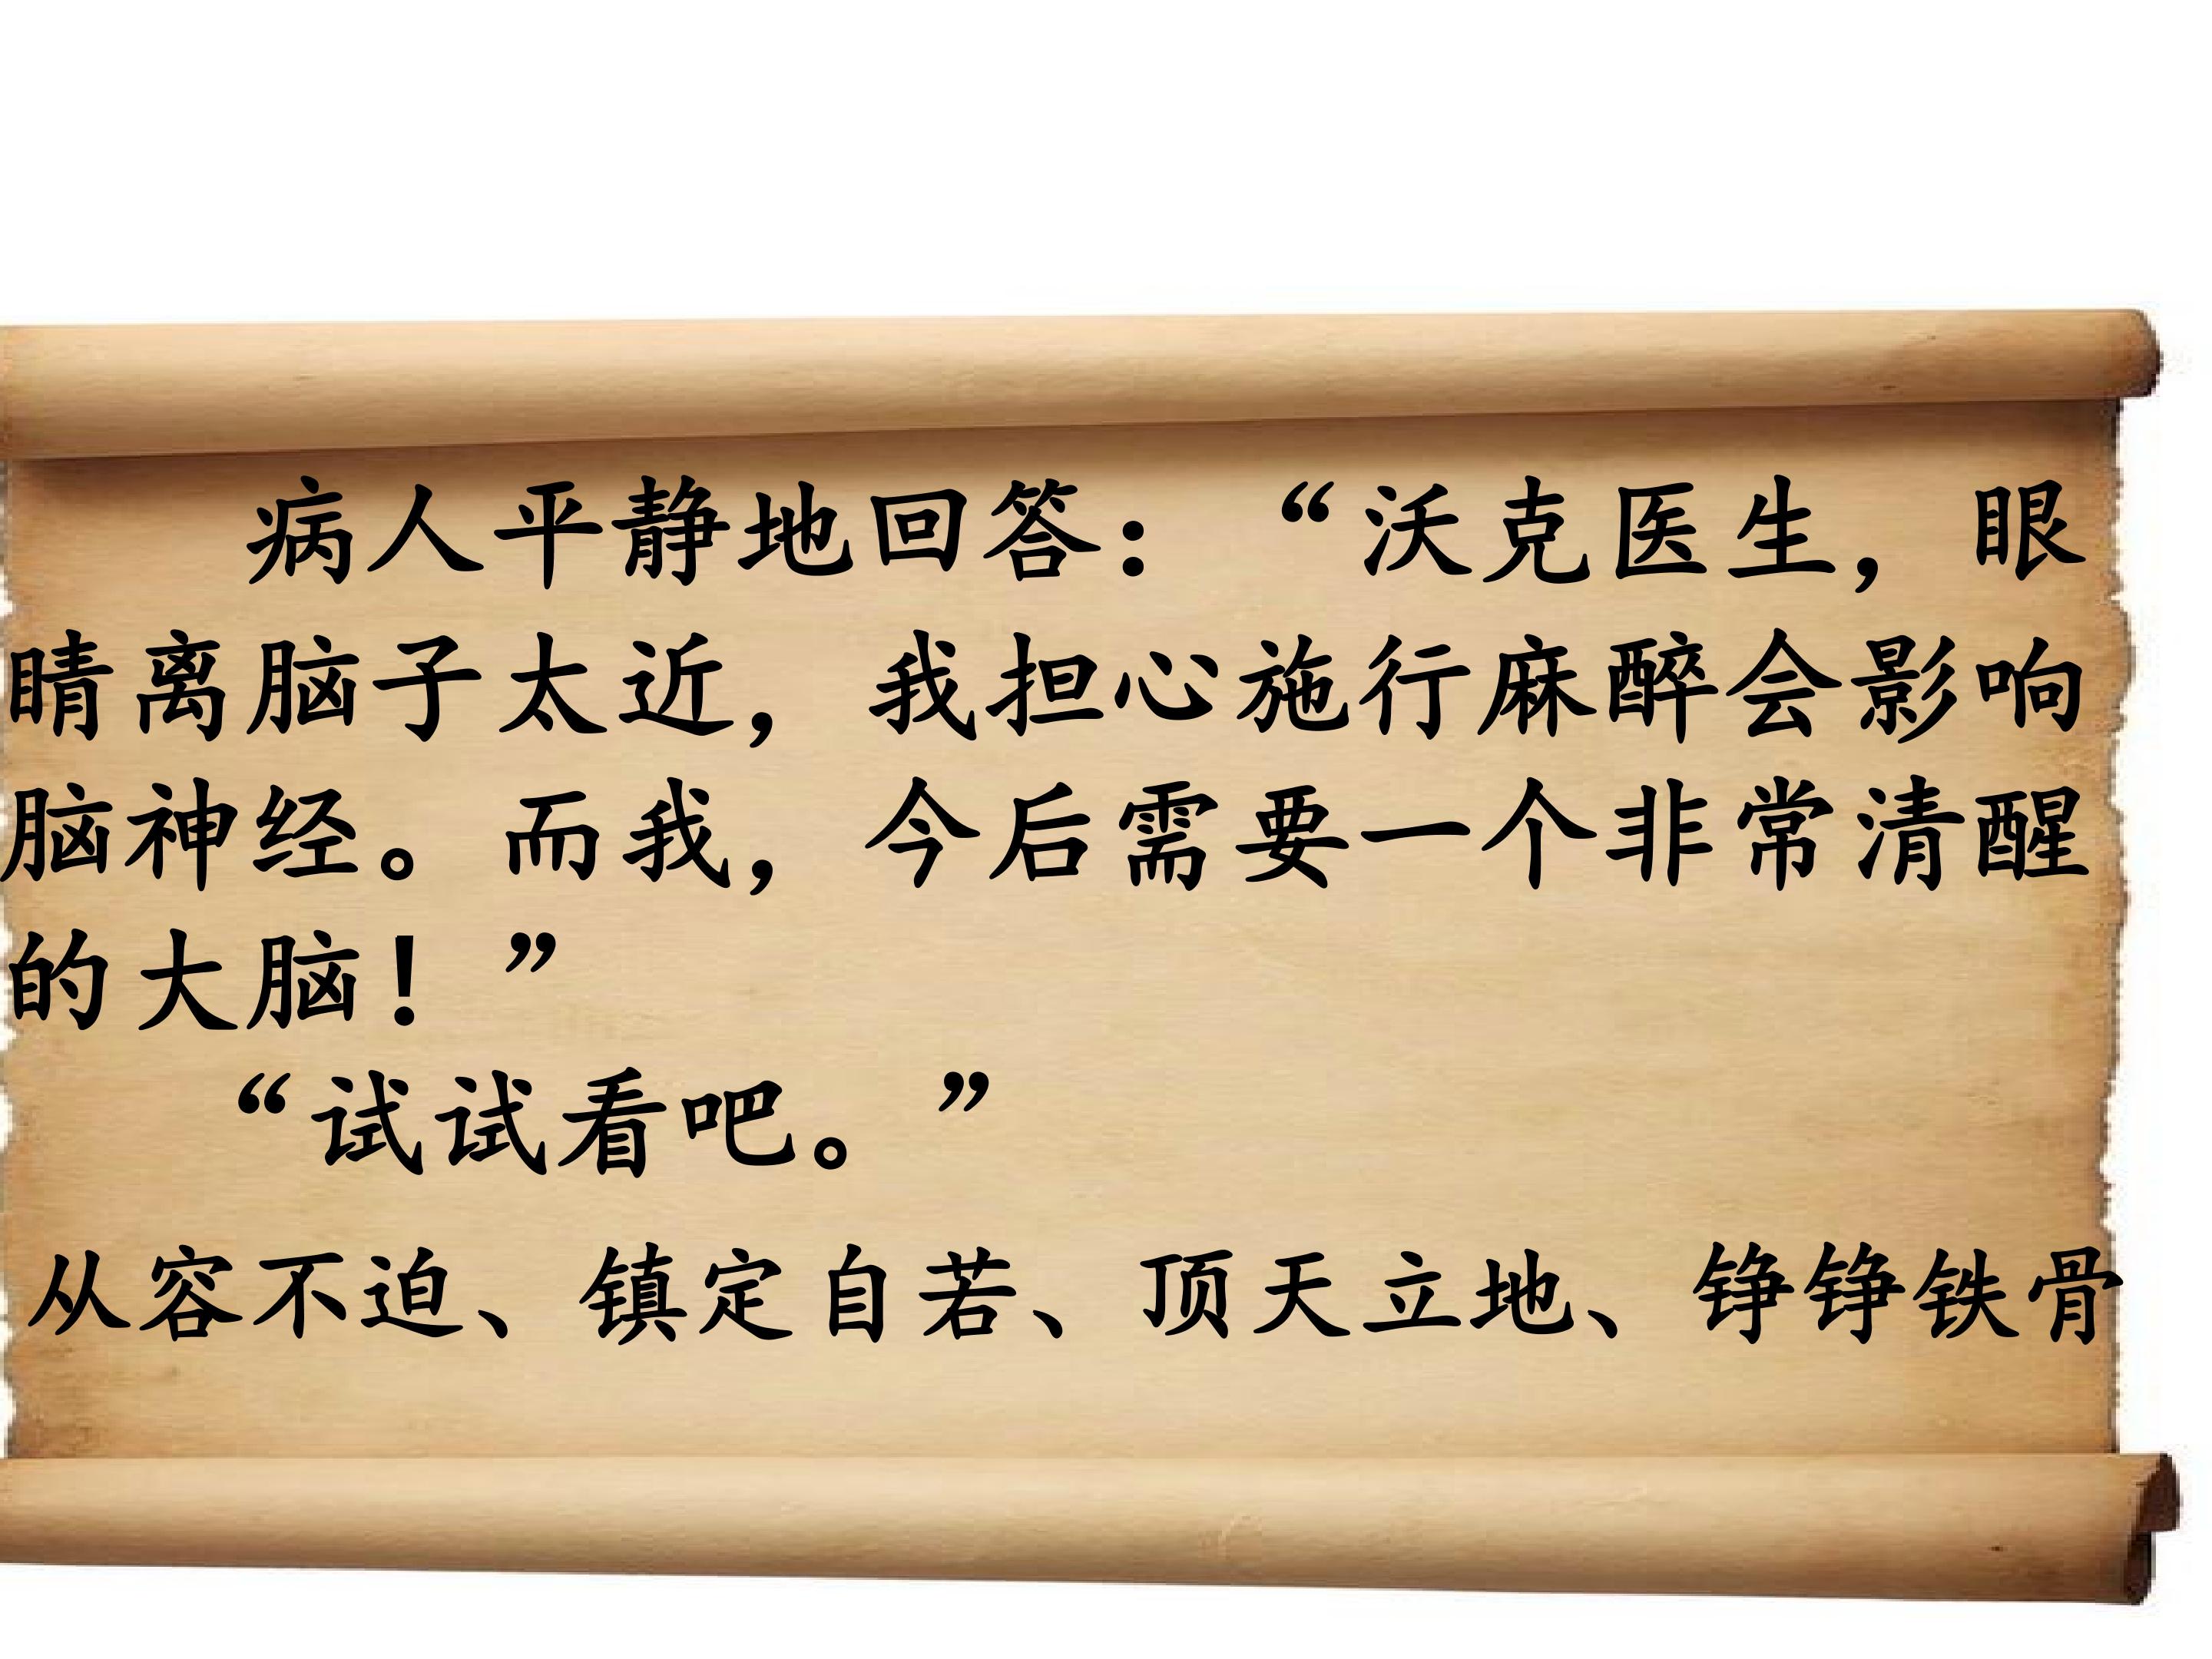 病人平静地回答：“沃克医生，眼
睛离脑子太近，我担心施行麻醉会影响
脑神经。而我，今后需要一个非常清醒
的大脑！”
“试试看吧。”
从容不迫、镇定自若、顶天立地、铮铮铁骨